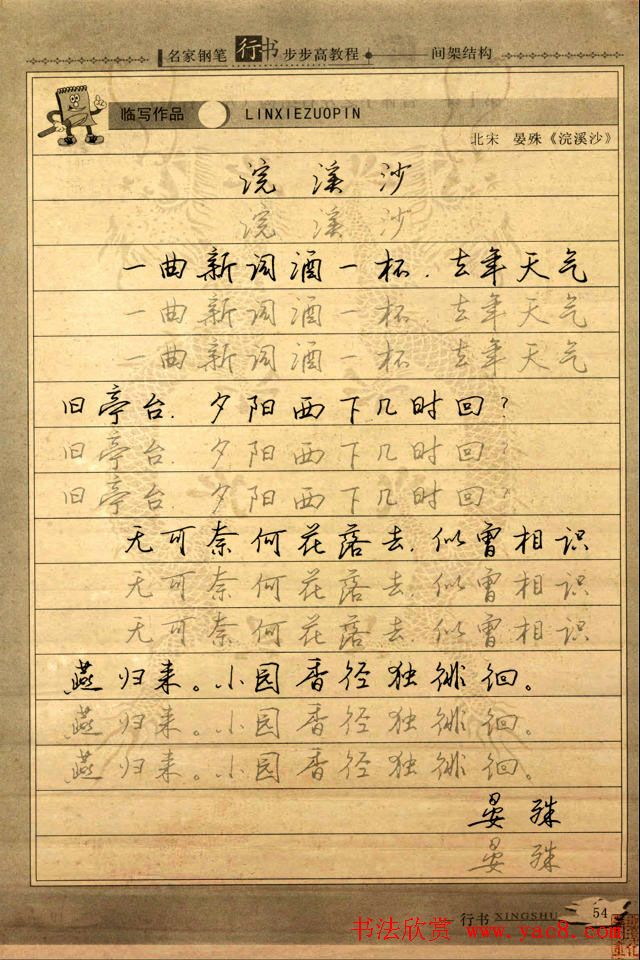 名家钢笔 行书 步步高教程 间架结构
临写作品 LINXIEZUOPIN
北宋 晏殊《浣溪沙》
浣溪沙
浣溪沙
一曲新词酒一杯.去年天气
一曲新词酒一杯.去年天气
一曲新词酒一杯.去年天气
旧亭台.夕阳西下几时回?
旧亭台.夕阳西下几时回?
旧亭台.夕阳西下几时回?
无可奈何花落去.似曾相识
无可奈何花落去.似曾相识
无可奈何花落去.似曾相识
燕归来。小园香径独徘徊。
燕归来。小园香径独徘徊。
燕归来。小园香径独徘徊。
晏殊
晏殊
行书 XINGSHU 54
书法欣赏 www.yac8.com